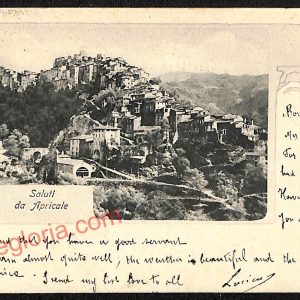 Saluti
da Apricale
egloria.com
My
For
had
Have
You
and that you have a good servant
am almost quite well; the weather is beautiful and the
I send my best love to all
Lucien